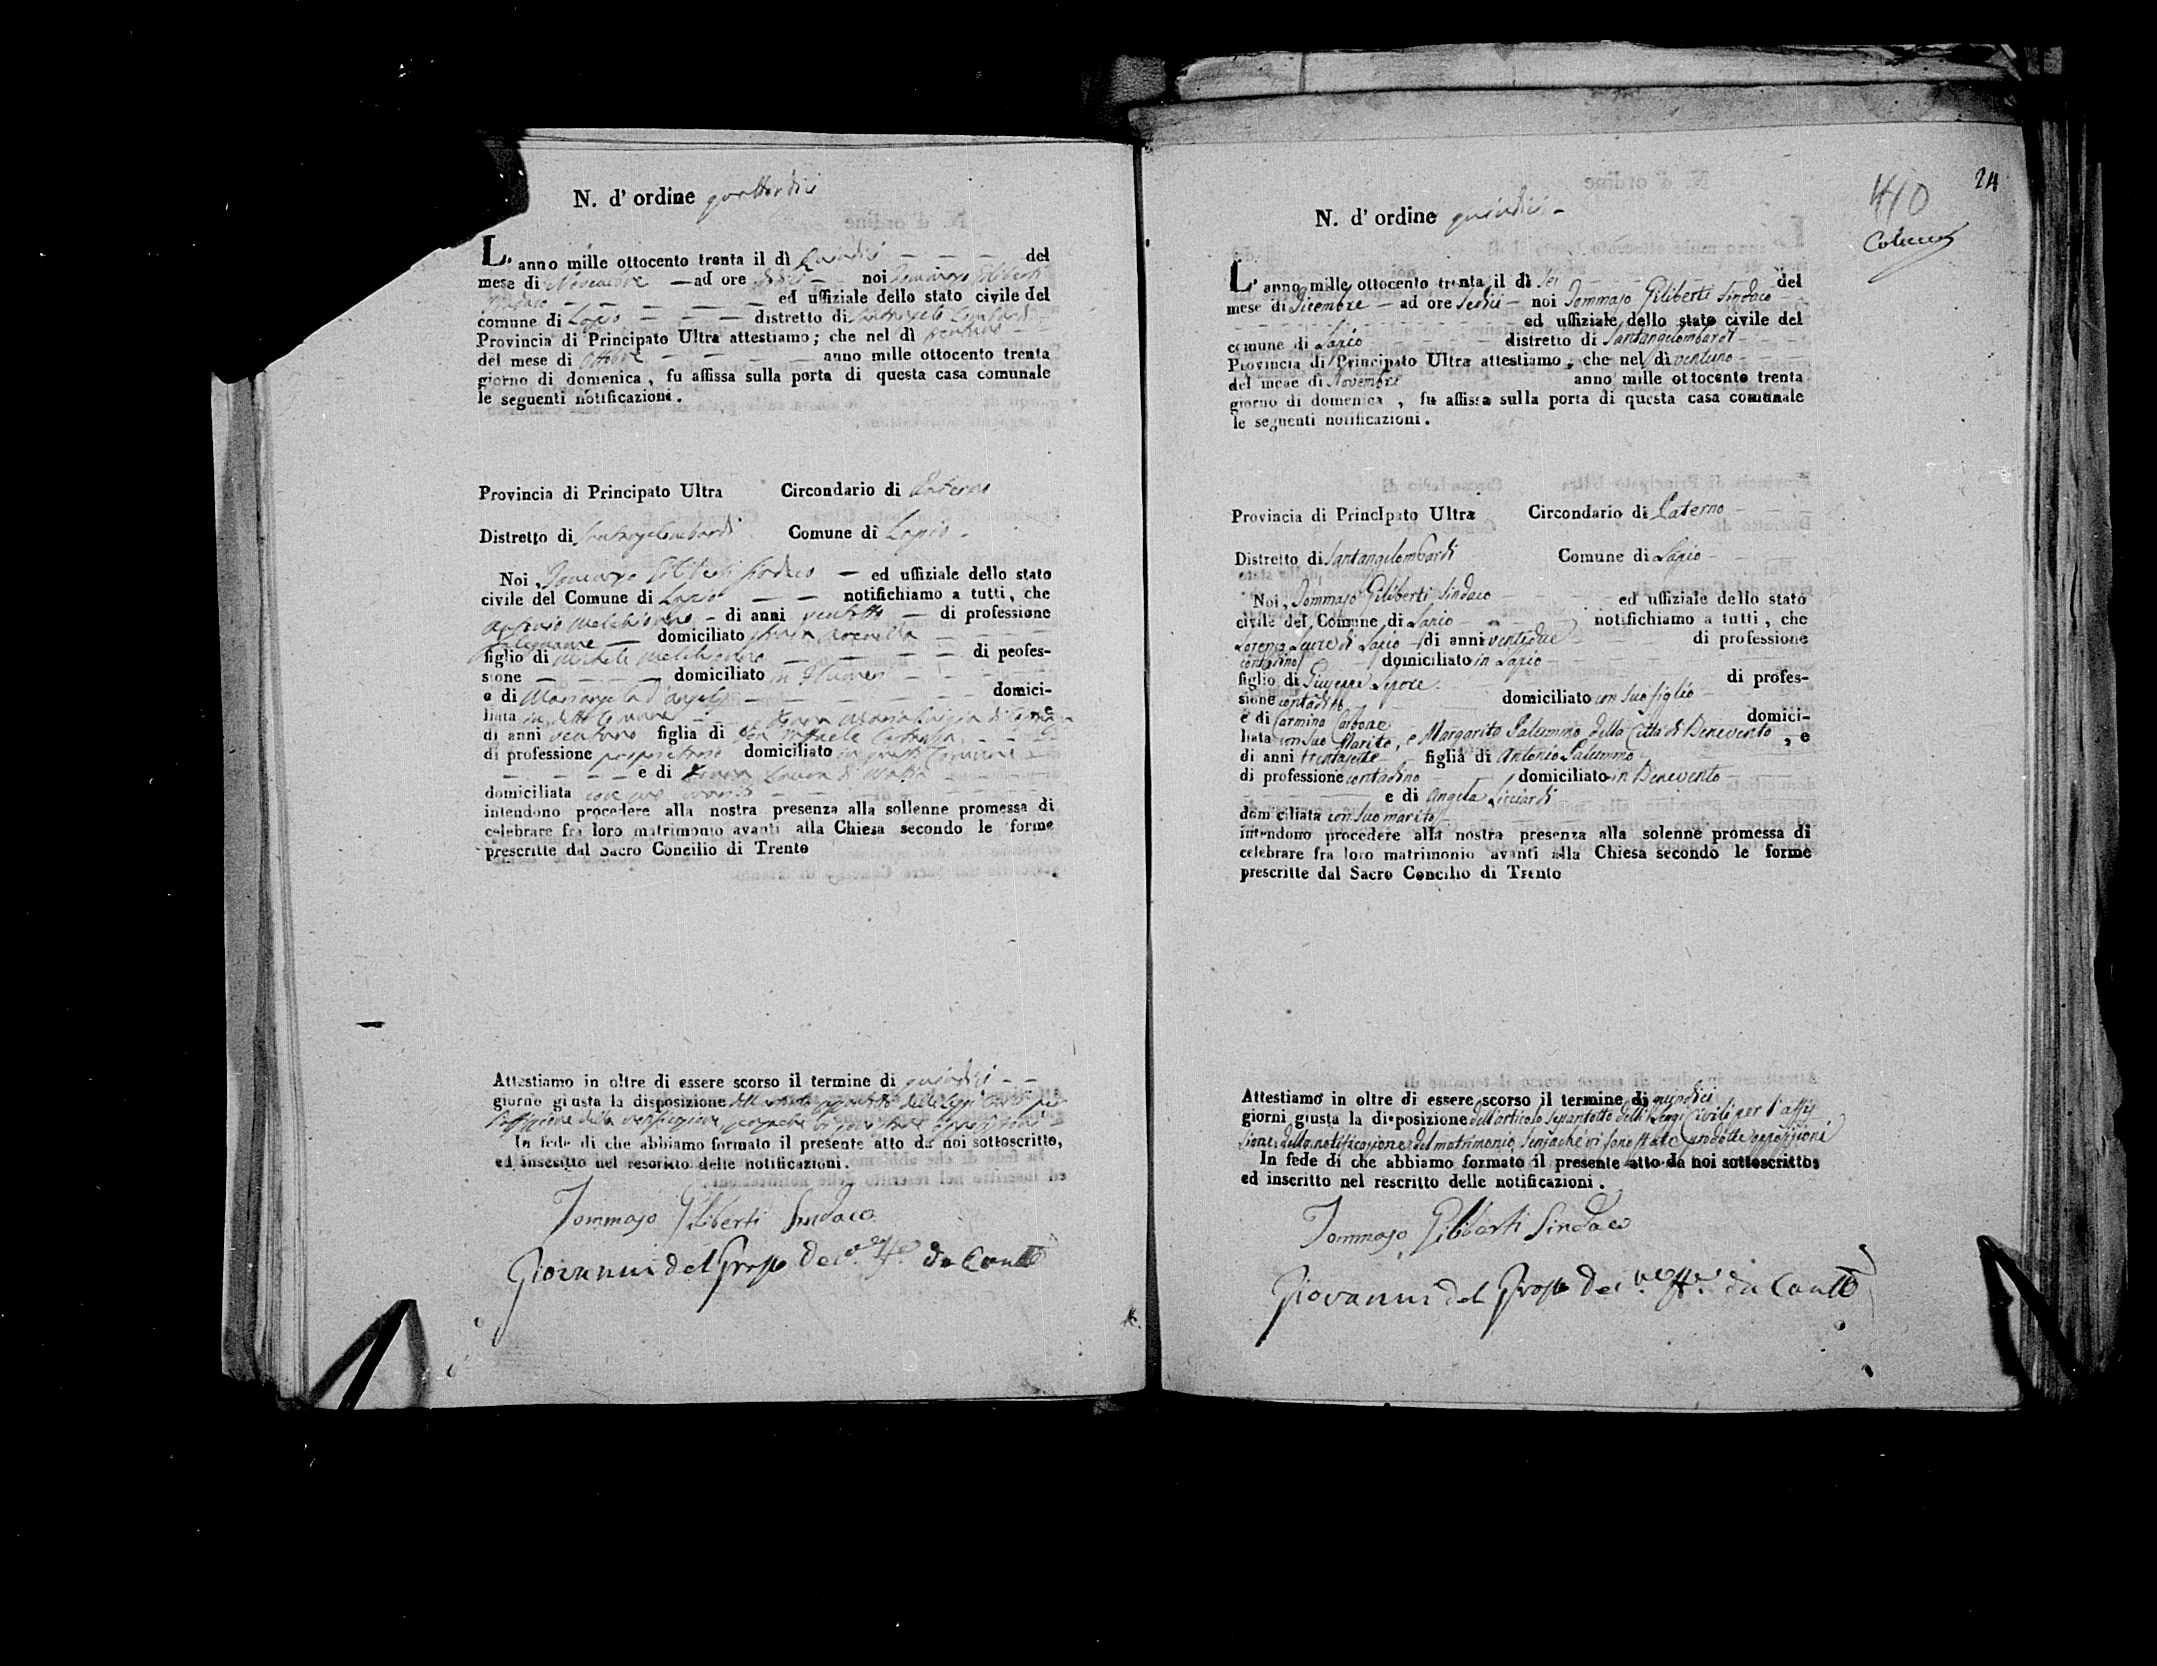 N. d' ordine quattordici
L' anno mille ottocento trenta il dì quindici del
mese di Novembre ad ore sedici noi Tommaso Giliberti
Sindaco ed uffiziale dello stato civile del
comune di Lapio distretto di Santangelo Lombardi
Provincia di Principato Ultra attestiamo; che nel dì
del mese di ottobre anno mille ottocento trenta
giorno di domenica, fu affissa sulla porta di questa casa comunale
le seguenti notificazioni.
Provincia di Principato Ultra Circondario di Paterno
Distretto di Santangelombardi Comune di Lapio
Noi, Tommaso Giliberti Sindaco ed uffiziale dello stato
civile del Comune di Lapio notifichiamo a tutti, che
Antonio Melchionno di anni ventotto di professione
domiciliato
figlio di Michele Melchionno di peofes-
sione domiciliato in Flumeri
e di Mariangela d'angelo domici-
liata in detto Comune e
di anni ventuno figlia di Don
di professione proprietario domiciliato in questo Comune
e di
domiciliata con suo marito
intendono procedere alla nostra presenza alla sollenne promessa di
celebrare fra loro matrimonio avanti alla Chiesa secondo le forme
prescritte dal Sacro Concilio di Trento
Attestiamo in oltre di essere scorso il termine di quindici
giorno giusta la disposizione
In fede di che abbiamo formato il presente atto da noi sottoscritto,
ed inscritto nel rescritto delle notificazioni.
Tommaso Giliberti Sindaco
Giovanni del Grosso
24
410
N. d' ordine quindici
L' anno mille ottocento trenta il dì sei del
mese di Dicembre ad ore sedici noi Tommaso Giliberti Sindaco
ed uffiziale dello stato civile del
comune di Lapio distretto di Santangelombardi
Provincia di Principato Ultra attestiamo, che nel dì ventuno
del mese di Novembre anno mille ottocento trenta
giorno di domenica, fu affissa sulla porta di questa casa comunale
le seguenti notificazioni.
Provincia di PrincIpato Ultra Circondario di Paterno
Distretto di Santangelombardi Comune di Lapio
Noi, Tommaso Giliberti Sindaco ed uffiziale dello stato
civile del Comune di Lapio notifichiamo a tutti, che
Lorenzo Lepore di Lapio di anni ventidue di professione
contadino domiciliato in Lapio
figlio di Giuseppe Lepore di profes-
sione contadino domiciliato con suo figlio
e di Carmina Carbone domici-
liata con suo Marito, e Margarita Palummo della Città di Benevento, e
di anni trentasette figlia di Antonio Palummo
di professione contadino domiciliato in Benevento
e di Angela Licciardi
domiciliata con suo marito
intendono procedere alla nostra presenza alla solenne promessa di
celebrare fra loro matrimonio avanti alla Chiesa secondo le forme
prescritte dal Sacro Concilio di Trento
Attestiamo in oltre di essere scorso il termine di quindici
giorni giusta la disposizione dell'articolo sepantotto delle Leggi Civili per l'affis
sione della notificazione del matrimonio, senzache vi sono state prodotte opposizioni
In fede di che abbiamo formato il presente atto da noi sottoscritto,
ed inscritto nel rescritto delle notificazioni.
Tommaso Giliberti Sindaco
Giovanni del Grosso